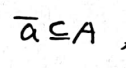 a̅ ⊆ A,